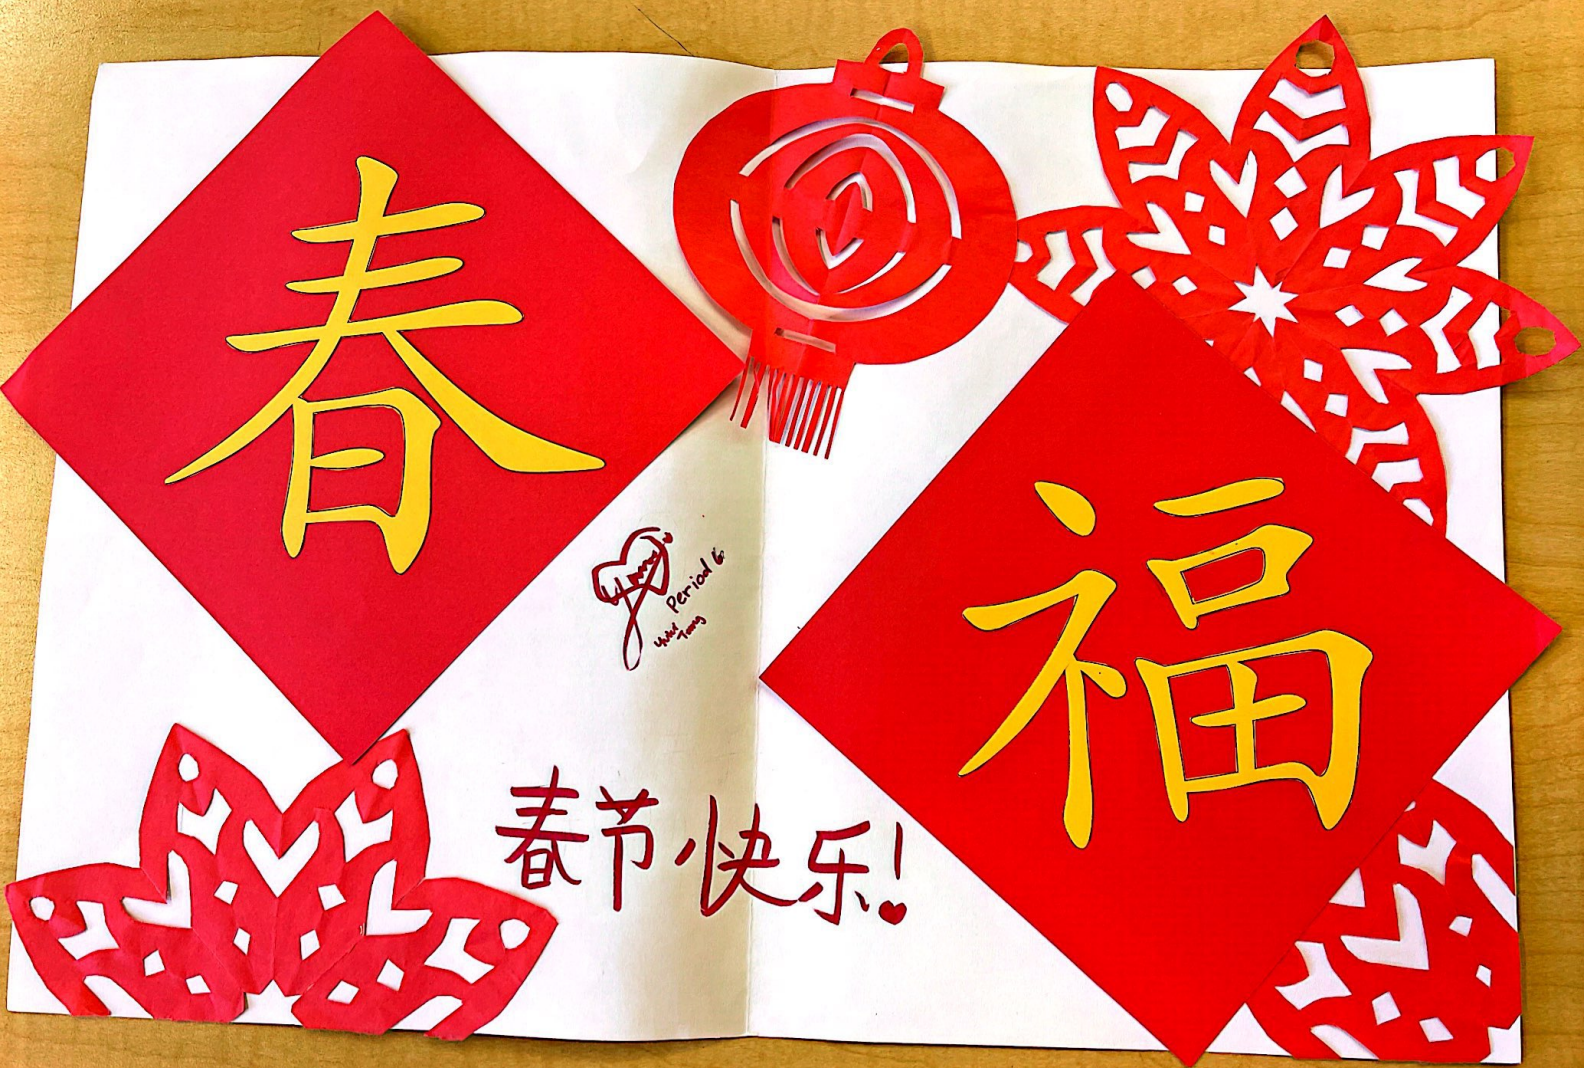 春
福
Period 6
春节快乐!